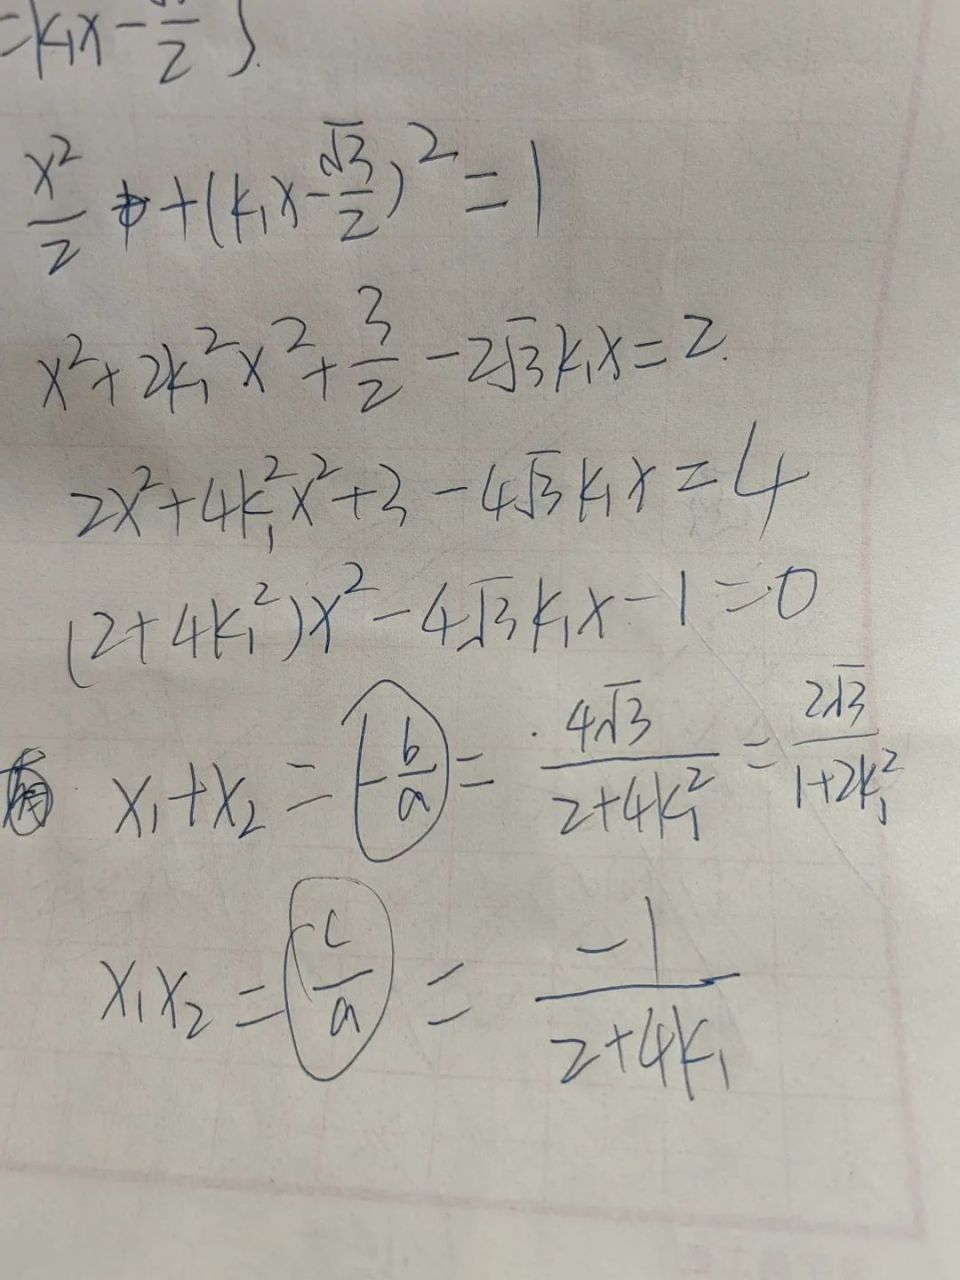 =k₁x-√3/2 }.
x²/2 +(k₁x-√3/2)²=1
x²+2k₁²x²+3/2-2√3k₁x=2.
2x²+4k₁²x²+3-4√3k₁x=4
(2+4k₁²)x²-4√3k₁x-1=0
x₁+x₂=-b/a=4√3/(2+4k₁²)=2√3/(1+2k₁²)
x₁x₂=c/a=-1/(2+4k₁)